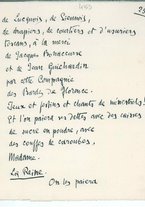 de Lucquois, de Siennois,
de drapiers, de courtiers et d'usuriers
toscans, à la merci
de Jacques Bonaccorse
et de Jean Guichardin
par cette Compagnie
des Bardes de Florence.
Jeux et festins et chants de ménestrels!
Et l'on paiera vos dettes avec des caisses
de sucre en poudre, avec
des couffes de caroubes,
Madame.
La Reine.
On les paiera